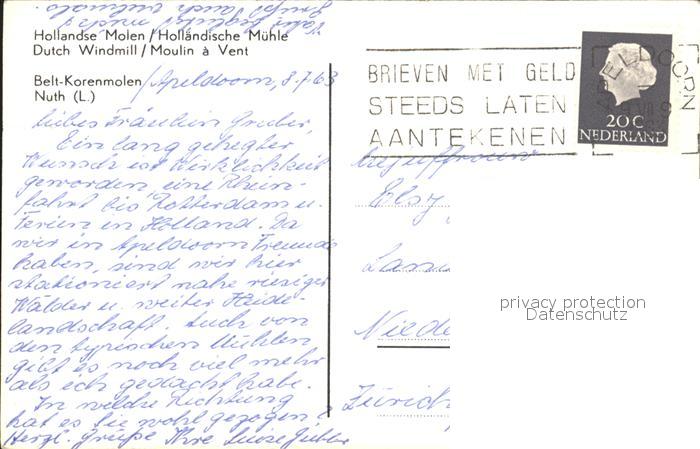 Hollandse Molen / Holländische Mühle
Dutch Windmill / Moulin à Vent
Belt-Korenmolen
Nuth (L.)
Apeldoorn, 8.7.63
Liebes Fräulein Gruber,
Ein lang gehegter
Wunsch ist Wirklichkeit
geworden, eine Rhein-
fahrt bis Rotterdam u.
Ferien in Holland. Da
wir in Apeldoorn Freunde
haben, sind wir hier
stationiert nahe riesiger
Wälder u. weiter Heide-
landschaft. Auch von
den typischen Mühlen
gibt es noch viel mehr
als ich gedacht habe.
In welche Richtung
hat es Sie wohl gezogen?
Herzl. Grüße Ihre Luise
BRIEVEN MET GELD
STEEDS LATEN
AANTEKENEN
APELDOORN
20 C
NEDERLAND
Elsy
Niede
Zürich
privacy protection
Datenschutz